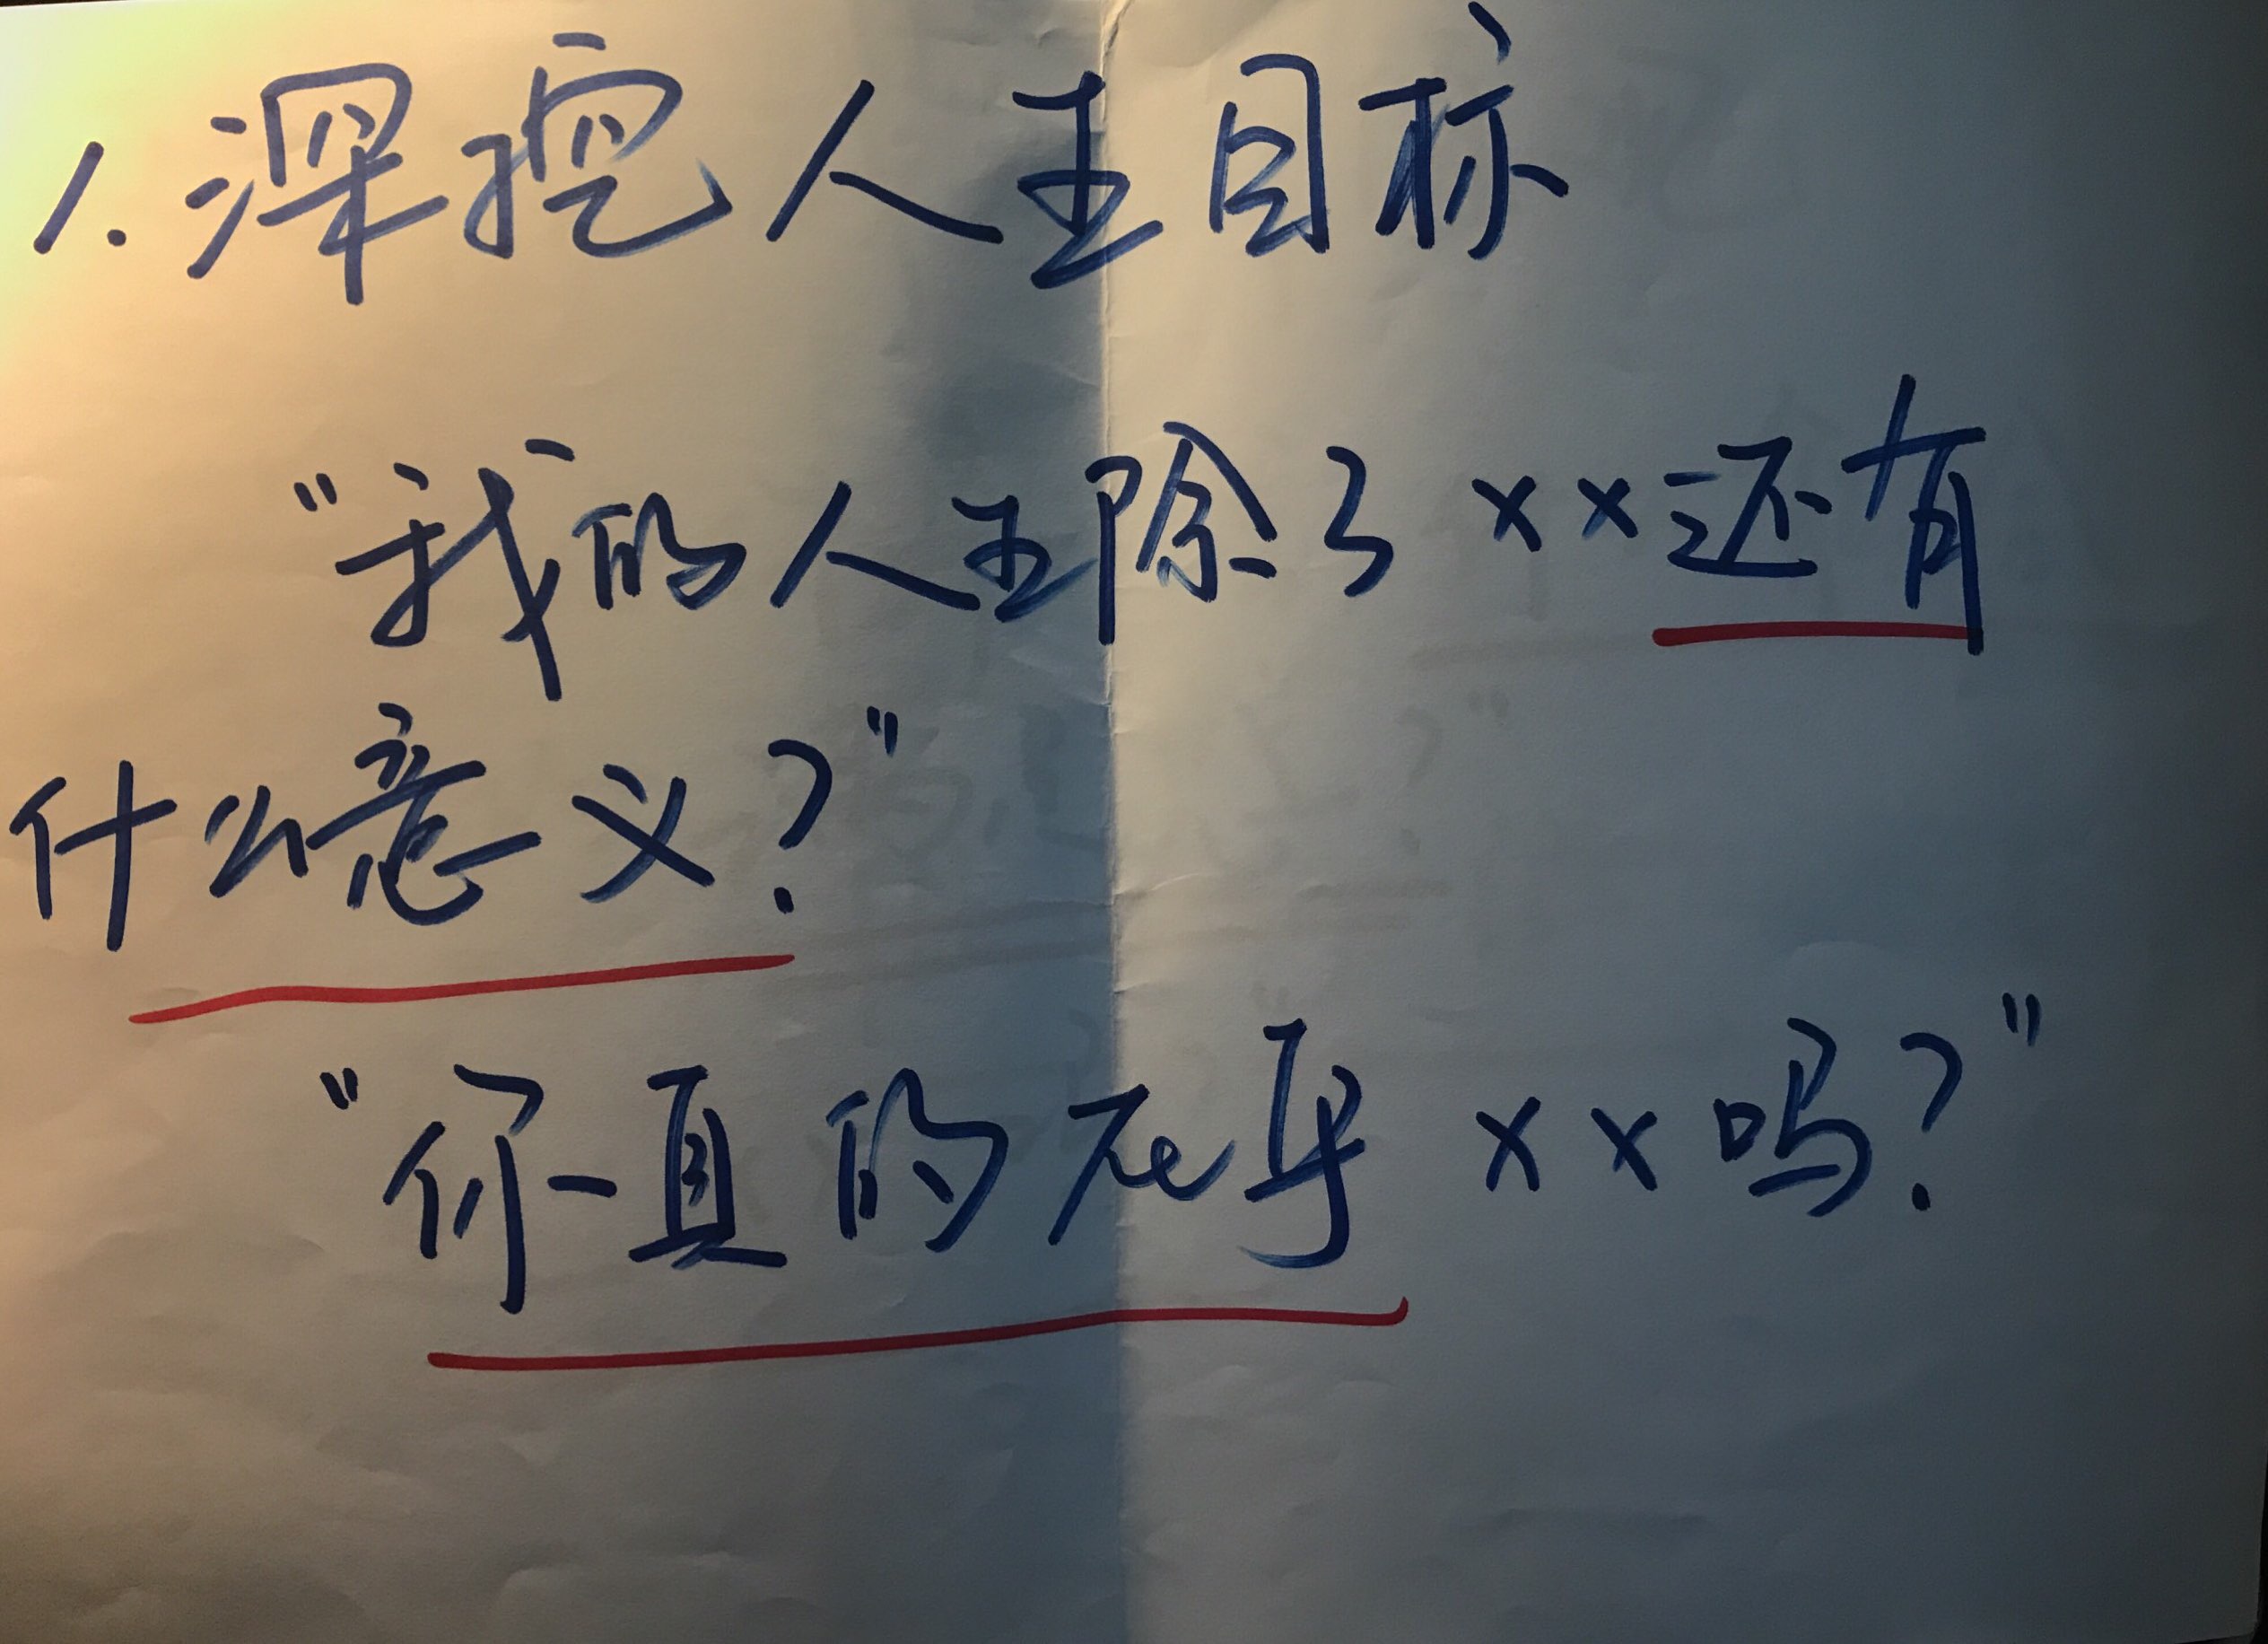 1. 深挖人生目标
"我的人生除了××还有
什么意义？"
"你真的在乎××吗？"